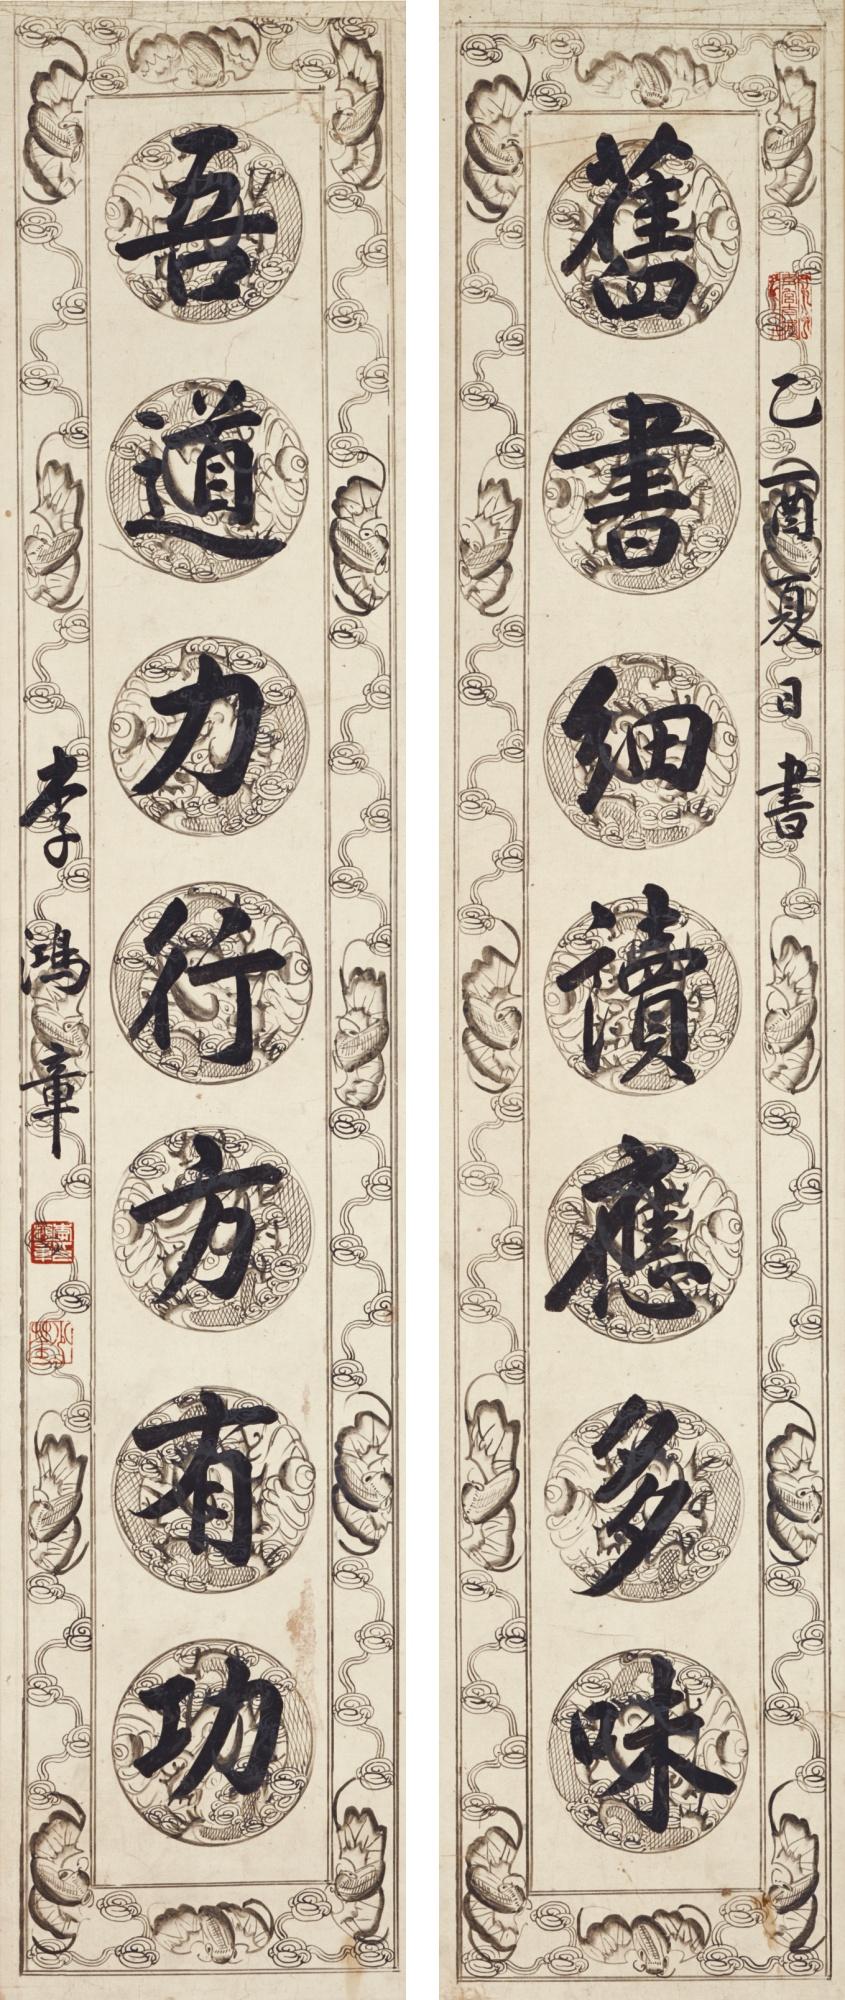 乙酉夏日書
舊書細讀應多味
吾道力行方有功
李鴻章